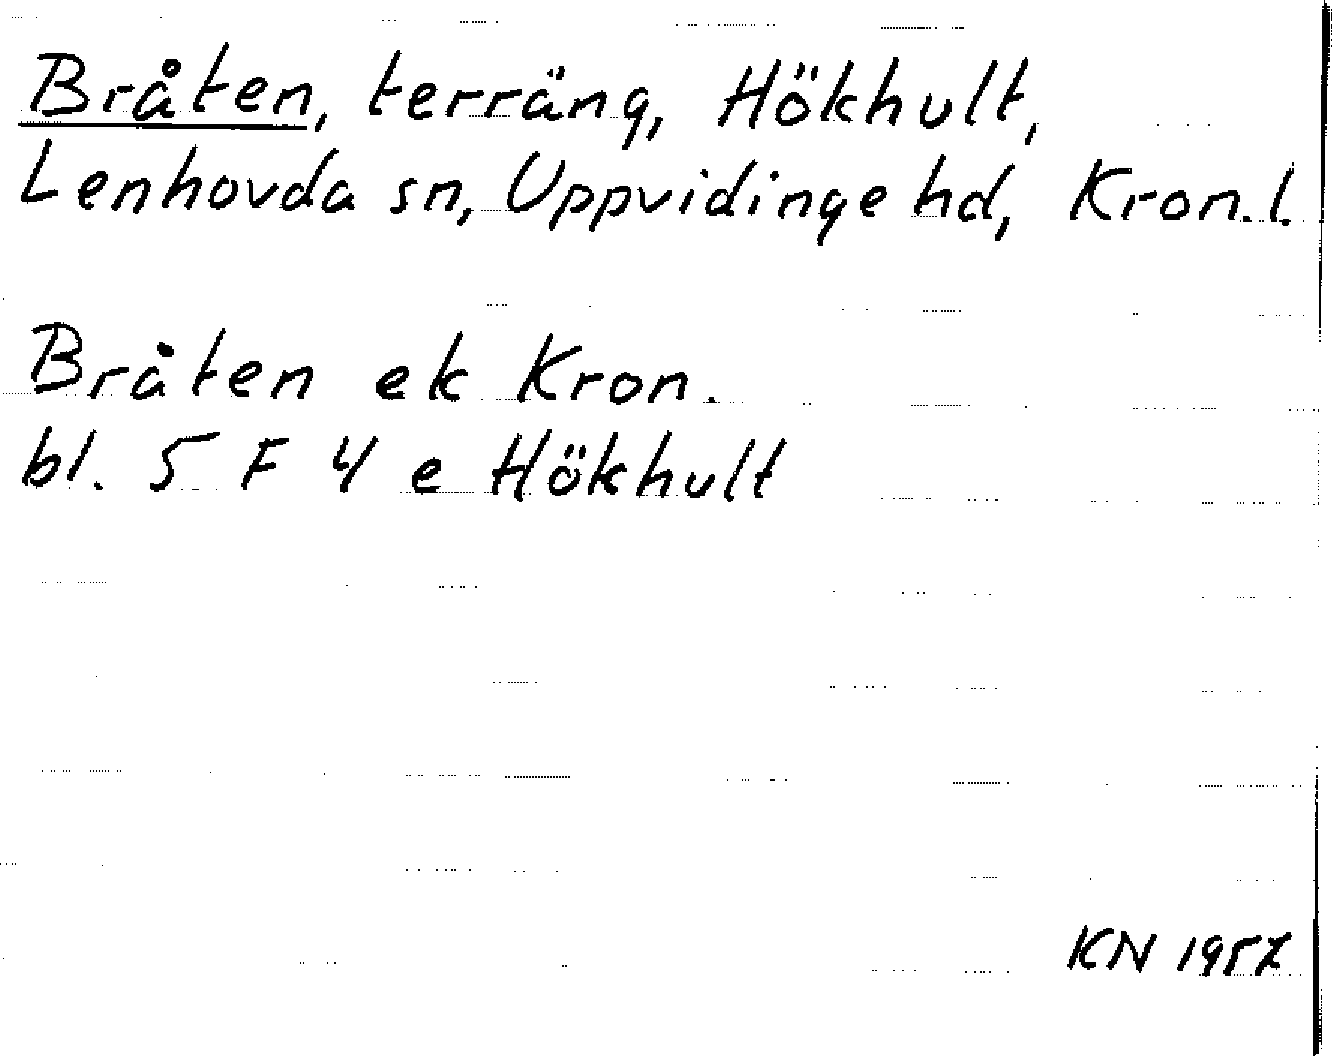 Bråten, terräng, Hökhult,
Lenhovda sn, Uppvidinge hd, Kron.l.
Bråten ek Kron.
bl. 5 F 4 e Hökhult
KN 1957